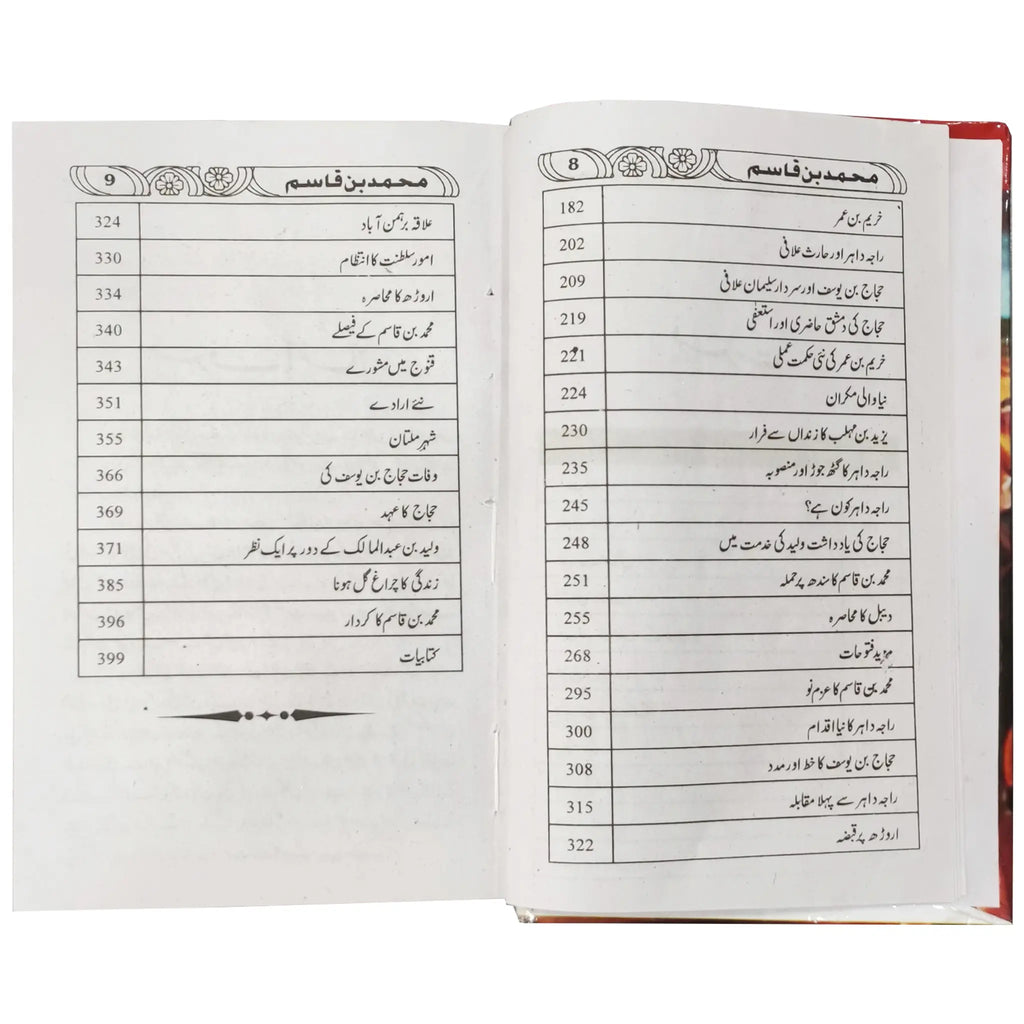 محمد بن قاسم 8
خریم بن عمر 182
راجہ داہر اور حارث علافی 202
حجاج بن یوسف اور سردار سلیمان علافی 209
حجاج کی دمشق حاضری اور استعفٰی 219
خریم بن عمر کی نئی حکمت عملی 221
نیا والی مکران 224
یزید بن مہلب کا زنداں سے فرار 230
راجہ داہر کا گٹھ جوڑ اور منصوبہ 235
راجہ داہر کون ہے؟ 245
حجاج کی یادداشت ولید کی خدمت میں 248
محمد بن قاسم کا سندھ پر حملہ 251
دیبل کا محاصرہ 255
مزید فتوحات 268
محمد بن قاسم کا عزم نو 295
راجہ داہر کا نیا اقدام 300
حجاج بن یوسف کا خط اور مدد 308
راجہ داہر سے پہلا مقابلہ 315
اروڑھ پر قبضہ 322
محمد بن قاسم 9
علاقہ برہمن آباد 324
امور سلطنت کا انتظام 330
اروڑھ کا محاصرہ 334
محمد بن قاسم کے فیصلے 340
قنوج میں مشورے 343
نئے ارادے 351
شہر ملتان 355
وفات حجاج بن یوسف کی 366
حجاج کا عہد 369
ولید بن عبدالمالک کے دور پر ایک نظر 371
زندگی کا چراغ گل ہونا 385
محمد بن قاسم کا کردار 396
کتابیات 399